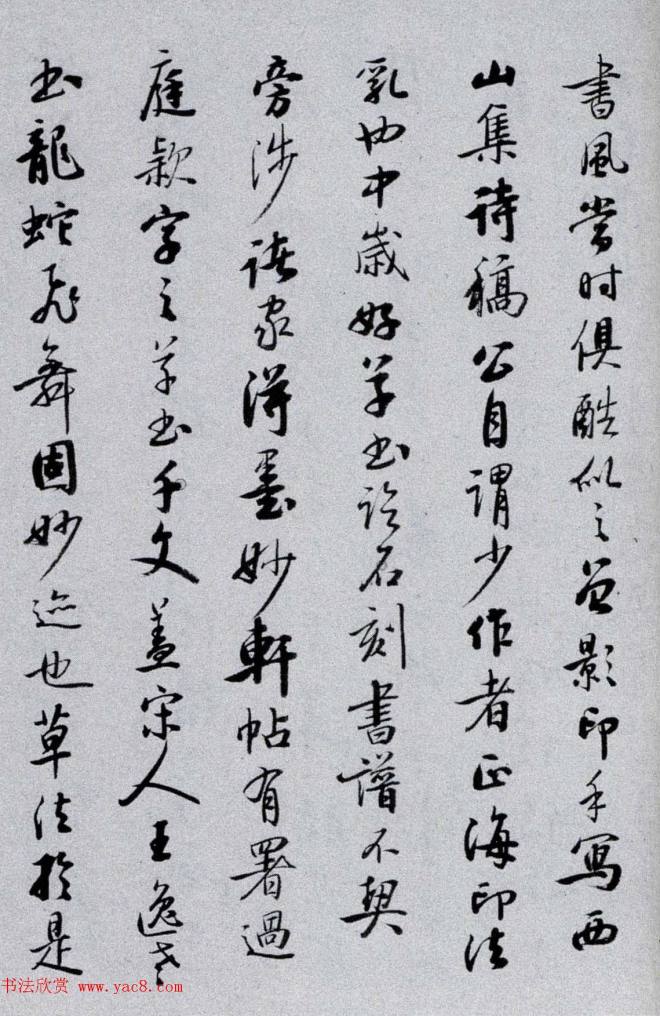 書風當时俱酷似之曾影印手寫西
山集诗稿公自謂少作者上海印法
乳也中歲好草书临石刻書譜不契
旁涉诸家得墨妙軒帖有署過
庭款字之草书千文盖宋人王逸老
书龍蛇飛舞固妙迹也草法於是
书法欣赏 www.yac8.com